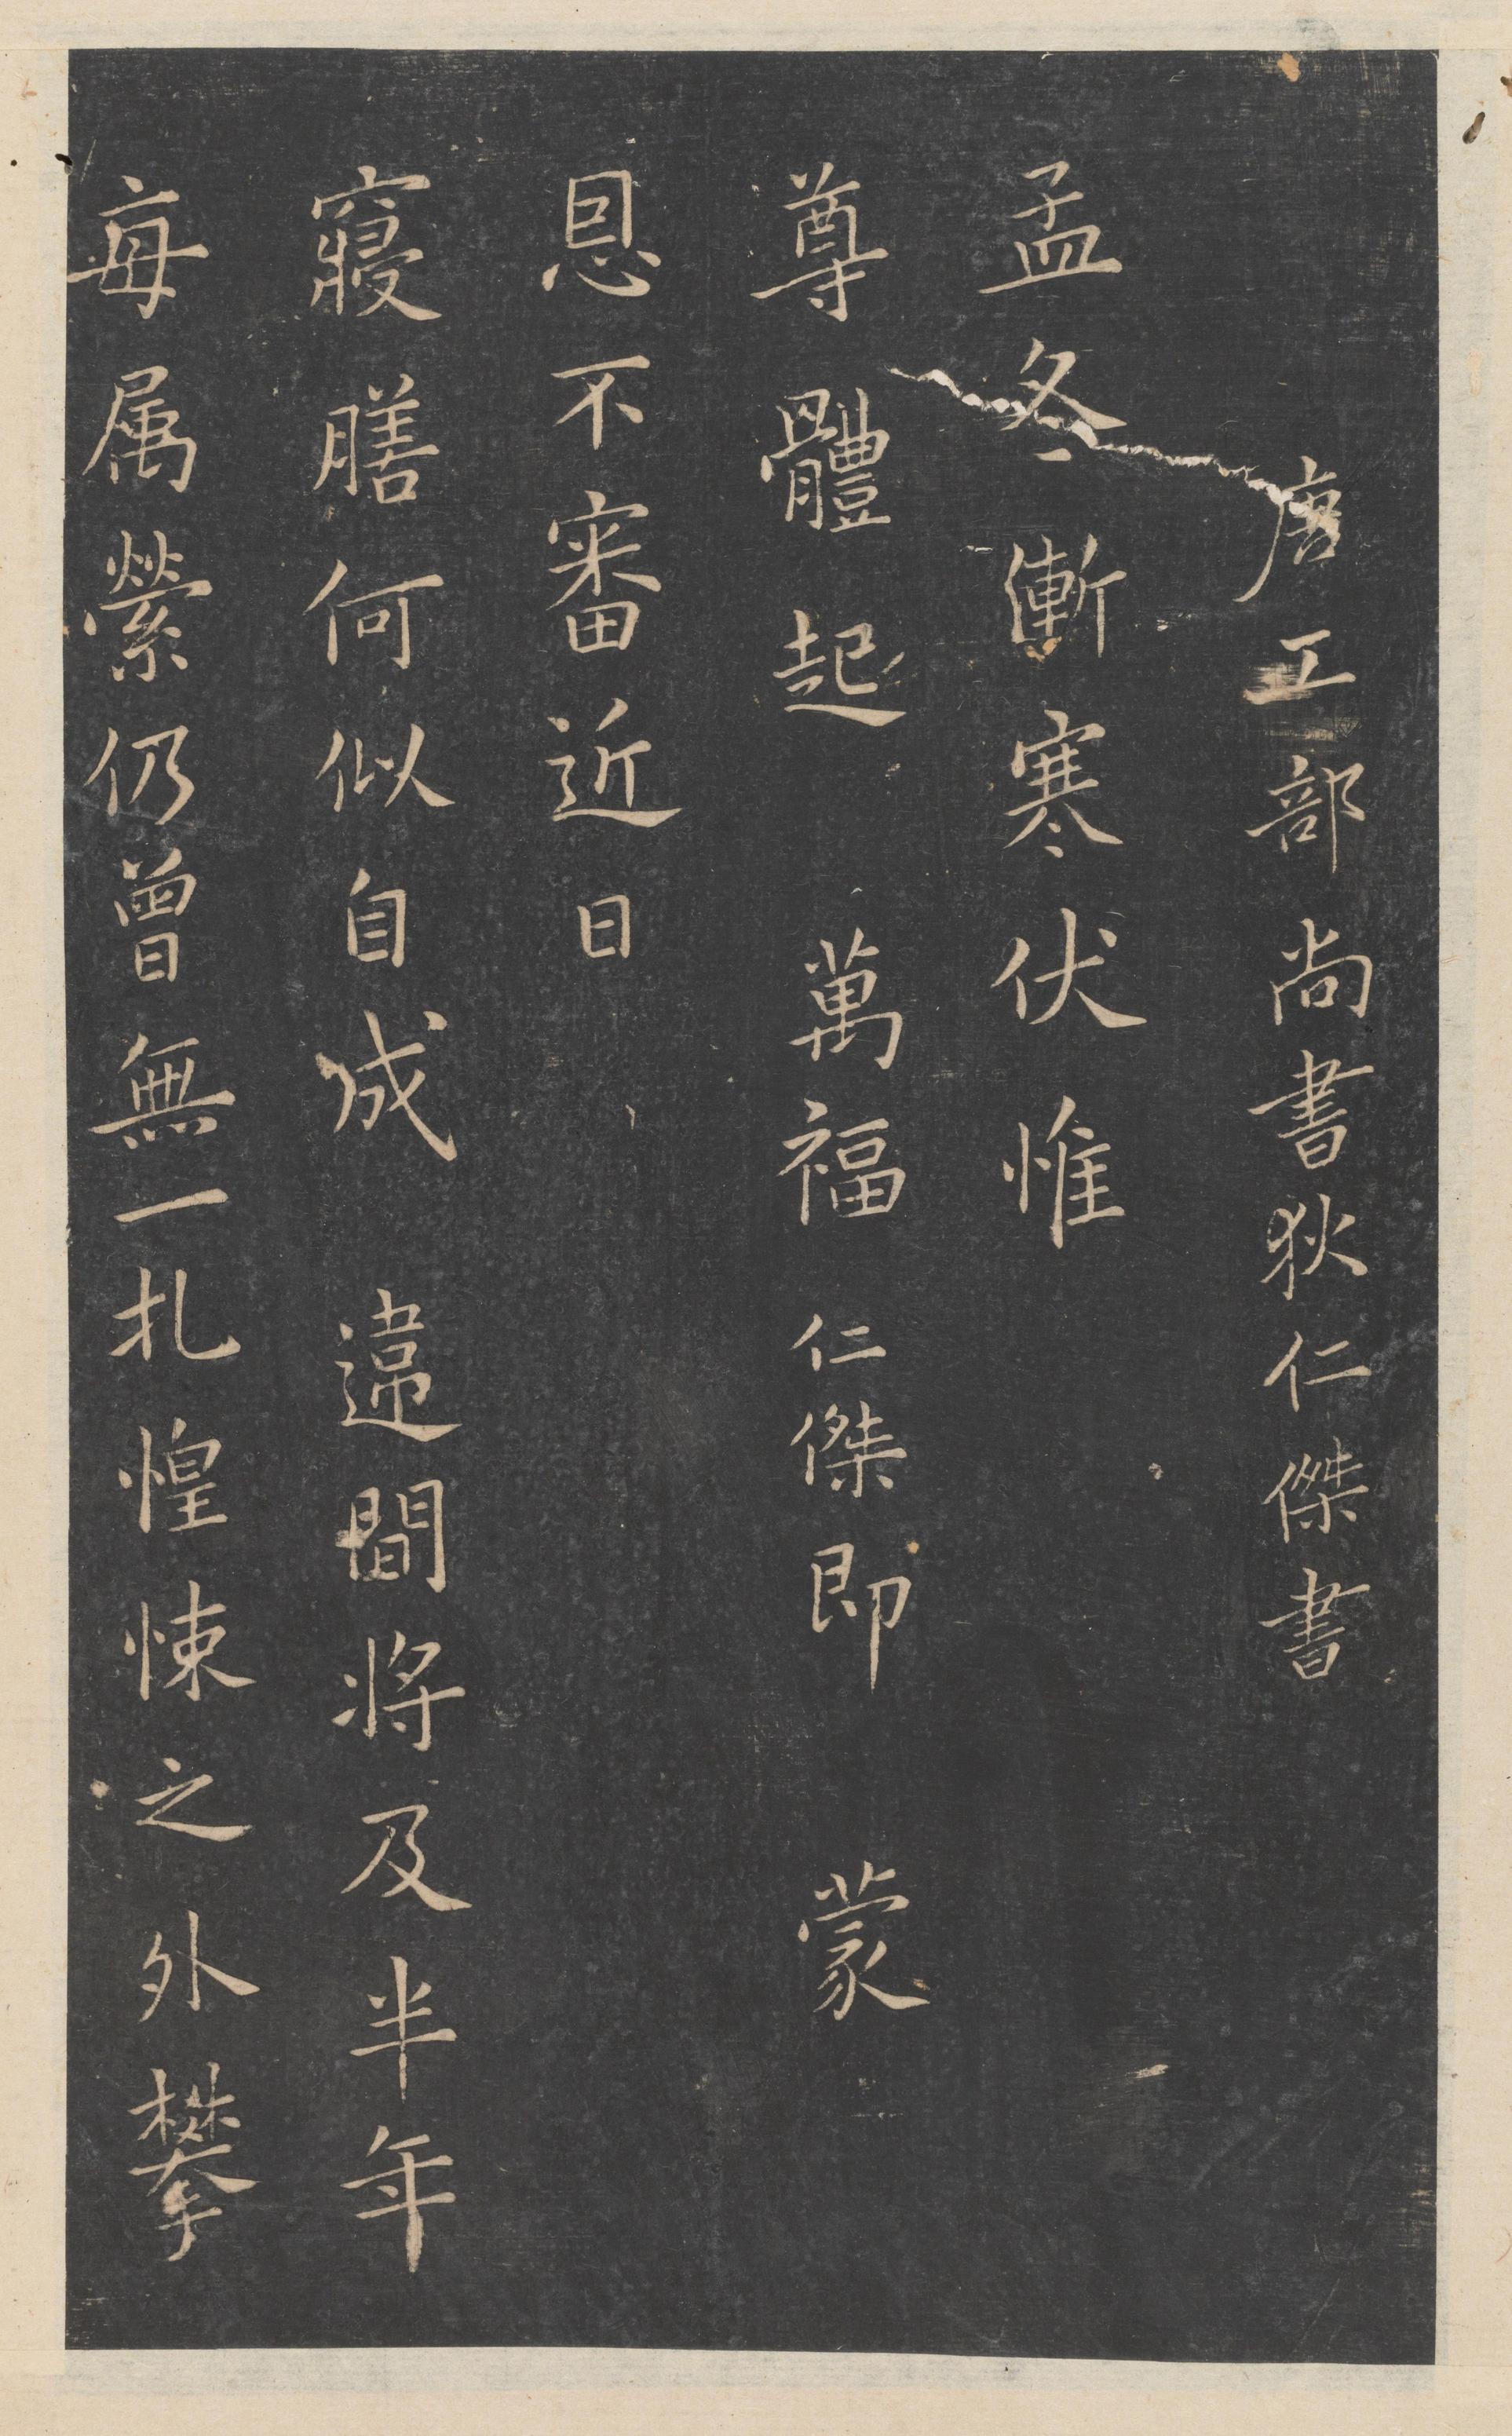 唐工部尚書狄仁傑書
孟冬漸寒伏惟
尊體起 萬福仁傑即 蒙
恩不審近日
寢膳何似自成 違間將及半年
每属縈仍曾無一札惶悚之外攀